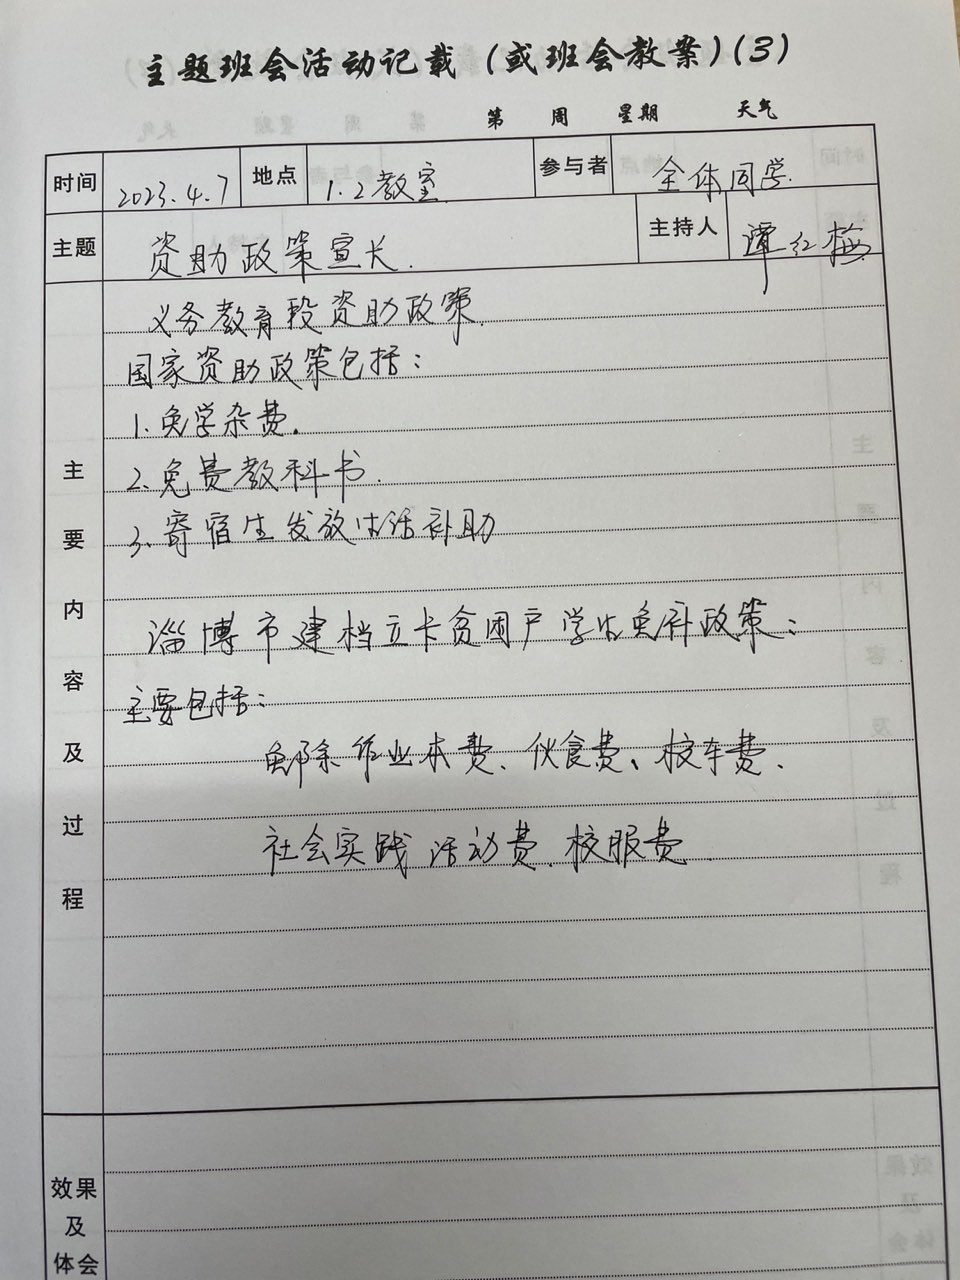 主题班会活动记载（或班会教案）（3）
第 周 星期 天气
时间 2023.4.7 地点 1.2教室 参与者 全体同学.
主题 资助政策宣长. 主持人 谭红梅
主要内容及过程
义务教育段资助政策.
国家资助政策包括：
1.免学杂费.
2.免费教科书.
3.寄宿生发放生活补助
淄博市建档立卡贫困户学生免补政策：
主要包括：
免除作业本费、伙食费、校车费.
社会实践活动费.校服费.
效果及体会